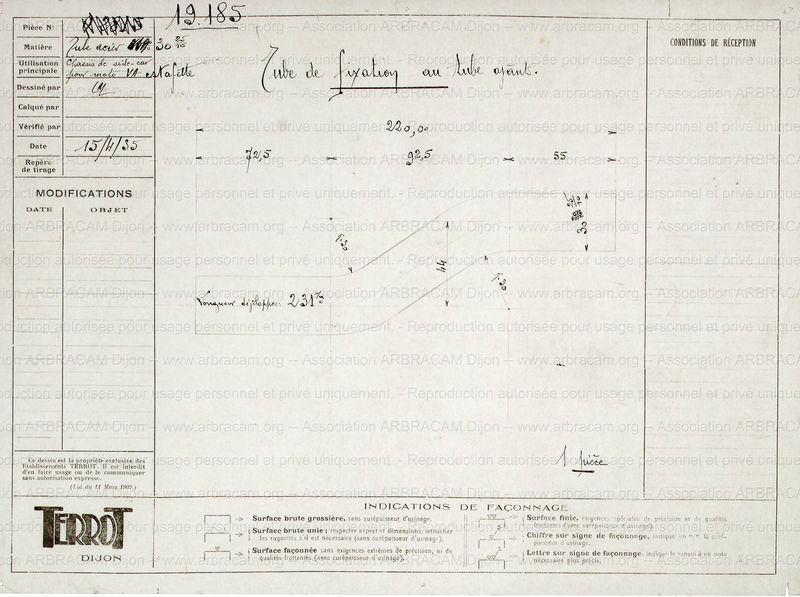 Pièce N°
19.185
Matière
Tube acier 30 25/10
Utilisation principale
Chassis de side-car
pour moto VA estafette
Dessiné par
Calqué par
Vérifié par
Date 15/4/35
Repère
de tirage
Tube de fixation au tube avant.
CONDITIONS DE RÉCEPTION
MODIFICATIONS
DATE OBJET
220,00
72,5 92,5 55
44
30
Longueur développée: 231
1 pièce
Ce dessin est la propriété exclusive des
Etablissements TERROT. Il est interdit
d'en faire usage ou de le communiquer
sans autorisation expresse.
(Loi du 11 Mars 1902.)
TERROT
DIJON
INDICATIONS DE FAÇONNAGE
Surface brute grossière, sans surépaisseur d'usinage.
Surface brute unie; respecter aspect et dimensions, retoucher
les rugosités s'il est nécessaire (sans surépaisseur d'usinage).
Surface façonnée sans exigences extrêmes de précision, ni de
qualités frottantes (avec surépaisseur d'usinage).
Surface finie, exigences spéciales de précision et de qualités
frottantes (avec surépaisseur d'usinage).
Chiffre sur signe de façonnage, indique en m/m la surépaisseur d'usinage.
Lettre sur signe de façonnage, indique le renvoi à un note
nécessaire plus précis.
Association ARBRACAM Dijon -- www.arbracam.org -- Association ARBRACAM Dijon -- www.arbracam.org -- Association ARBRACAM
Reproduction autorisée pour usage personnel et privé uniquement. - Reproduction autorisée pour usage personnel et privé uniquement.